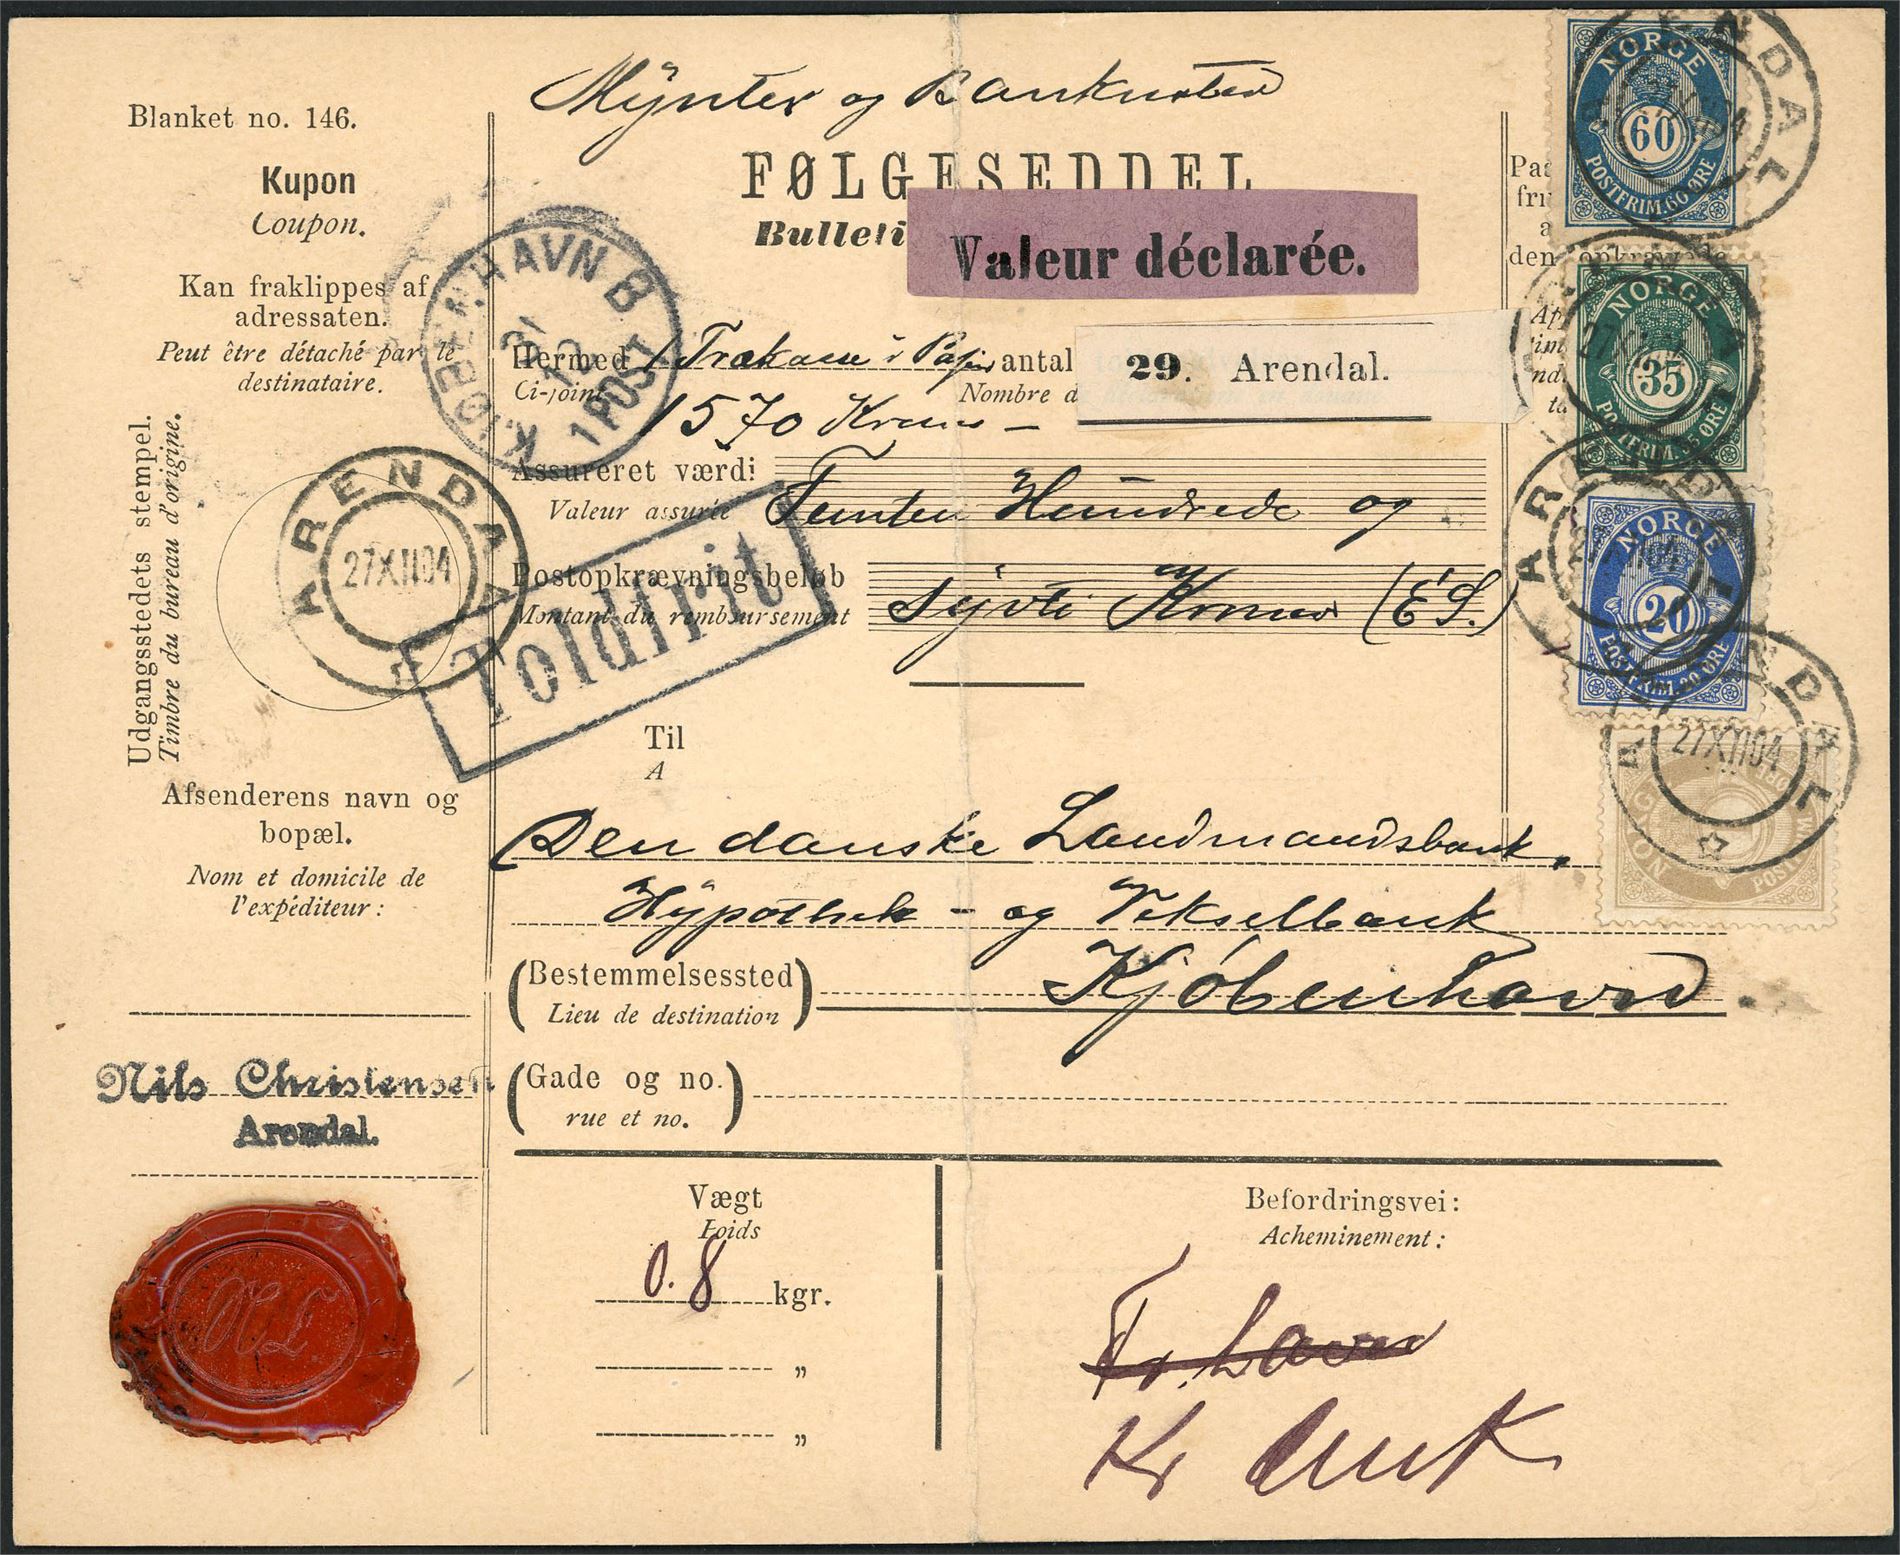 Mynter og Banknoter
Blanket no. 146.
Kupon
Coupon.
FØLGESEDDEL
Bulleti
Valeur déclarée.
Kan fraklippes af
adressaten.
Peut être détaché par le
destinataire.
KJØBENHAVN B
1 POST
Hermed 1 Trækasse i Papir antal
Ci-joint
Nombre d
29. Arendal.
1570 Kroner
Assureret værdi:
Valeur assurée
Femten Hundrede og
Postopkrævningsbeløb
Montant du remboursement
Sytti Kroner (E.S.)
Toldfrit
Udgangsstedets stempel.
Timbre du bureau d'origine.
ARENDAL
27XII04
Til
A
Afsenderens navn og
bopæl.
Nom et domicile de
l'expéditeur:
Den danske Landmandsbank,
Hypothek- og Vekselbank
(Bestemmelsessted)
Lieu de destination
Kjøbenhavn
Nils Christensen
Arendal.
(Gade og no.)
rue et no.
Vægt
Poids
0.8 kgr.
"
"
Befordringsvei:
Acheminement:
Pas
fri
a
den opkrævede
Ap
im
nd
ta
NORGE
60
POSTFRIM. 60 ØRE
ARENDAL
NORGE
35
POSTFRIM. 35 ØRE
NORGE
20
POSTFRIM. 20 ØRE
ARENDAL
27XII04